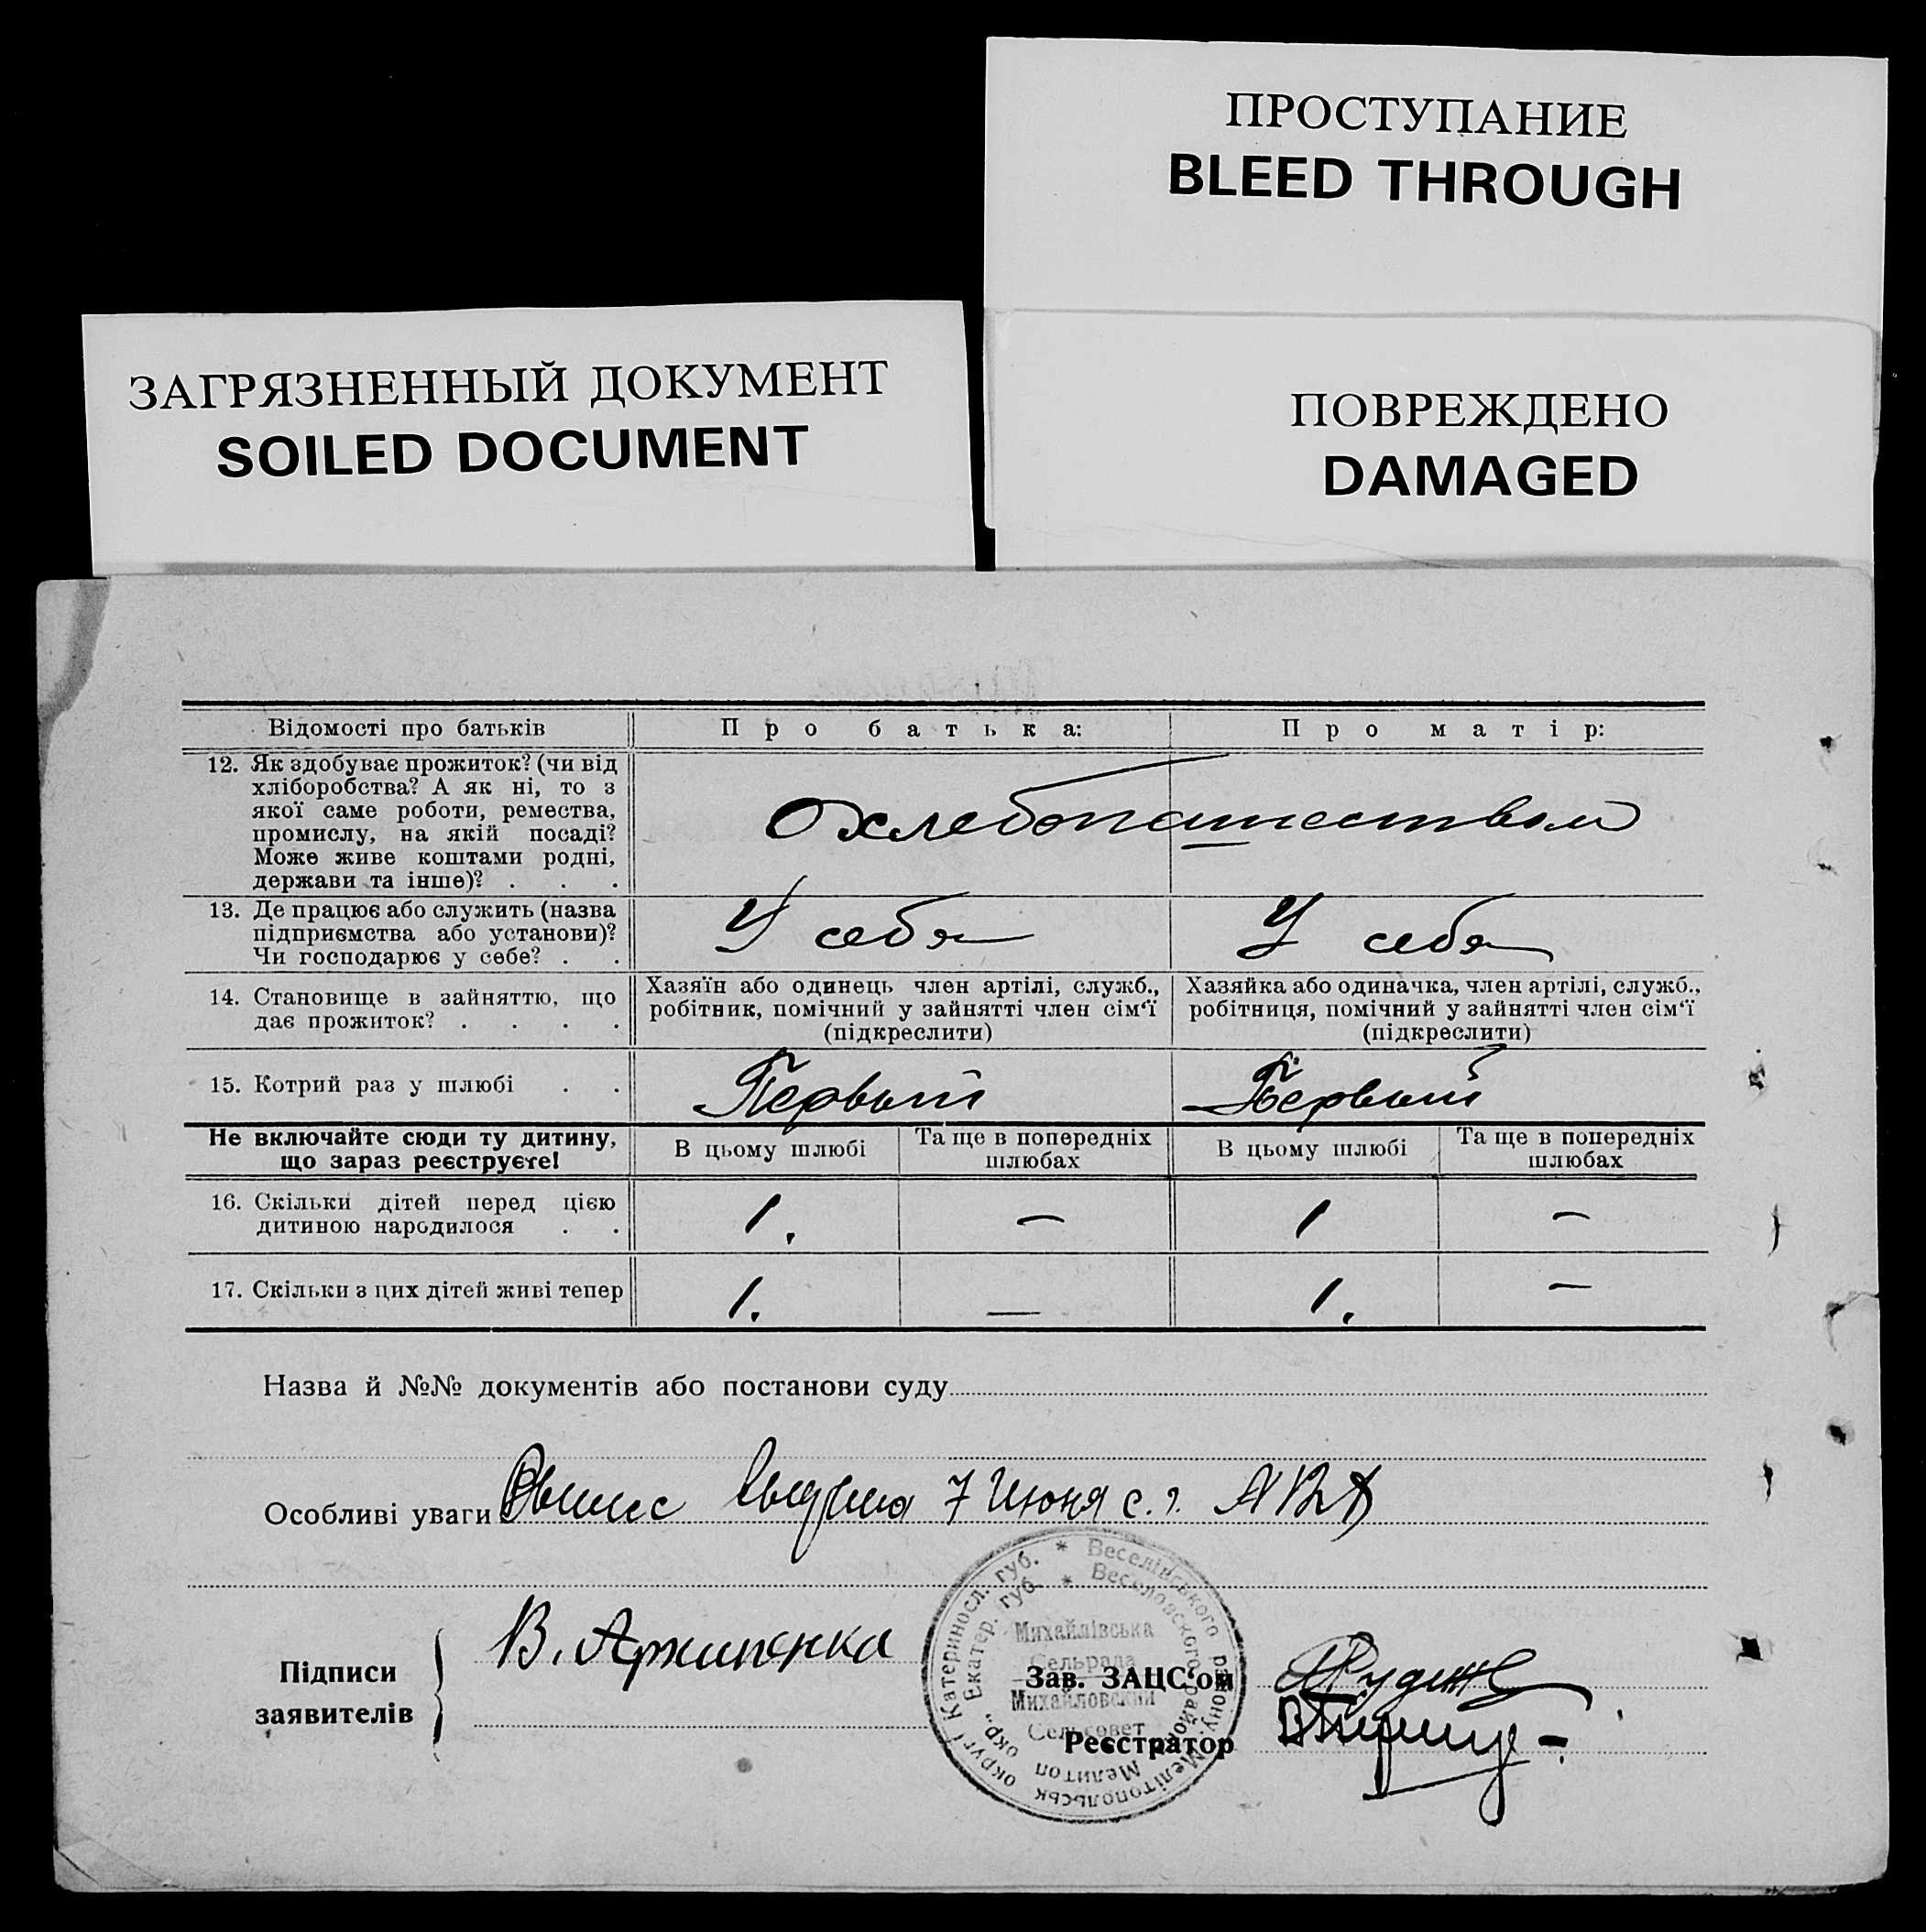 ПРОСТУПАНИЕ
BLEED THROUGH
ЗАГРЯЗНЕННЫЙ ДОКУМЕНТ
SOILED DOCUMENT
ПОВРЕЖДЕНО
DAMAGED
Відомості про батьків Про батька: Про матір:
12. Як здобуває прожиток? (чи від
хліборобства? А як ні, то з
якої саме роботи, ремества,
промислу, на якій посаді?
Може живе коштами родні,
держави та інше)? . . .
Охлебопашеством
13. Де працює або служить (назва
підприємства або установи)?
Чи господарює у себе? . .
У себя У себя
14. Становище в зайняттю, що
дає прожиток? . . . .
Хазяїн або одинець член артілі, служб.,
робітник, помічний у зайнятті член сім‘ї
(підкреслити)
Хазяйка або одиначка, член артілі, служб.,
робітниця, помічний у зайнятті член сім‘ї
(підкреслити)
15. Котрий раз у шлюбі . . Первый Первый
Не включайте сюди ту дитину,
що зараз реєструєте!
В цьому шлюбі
Та ще в попередніх
шлюбах
В цьому шлюбі
Та ще в попередніх
шлюбах
16. Скільки дітей перед цією
дитиною народилося . .
1. — 1 —
17. Скільки з цих дітей живі тепер 1. — 1. —
Назва й №№ документів або постанови суду
Особливі уваги 7 Июня с. г.
Підписи
заявителів
В. Архипенка
Зав. ЗАЦС‘ом
Реєстратор
Катериносл. губ. * Веселівського району, Мелітопольськ округ
Екатер. губ. * Веселовского района Мелитоп окр.,
Михайлівська
Сельрада
Михайловский
Сельсовет